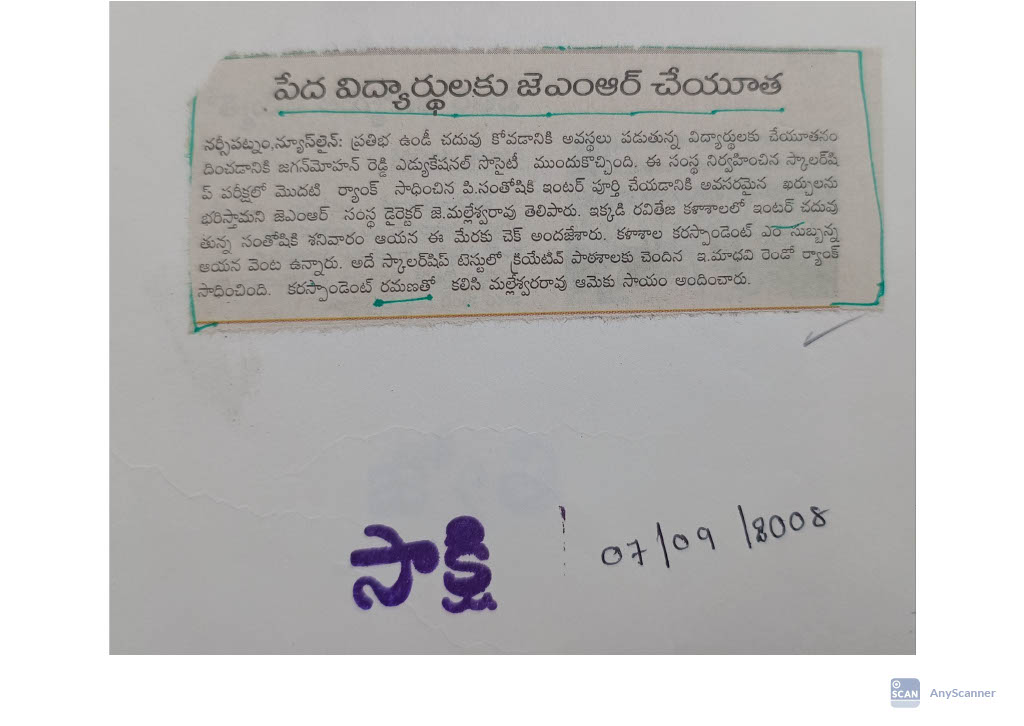 పేద విద్యార్థులకు జెఎంఆర్ చేయూత
నర్సీపట్నం,న్యూస్‌లైన్: ప్రతిభ ఉండీ చదువు కోవడానికి అవస్థలు పడుతున్న విద్యార్థులకు చేయూతనం
దించడానికి జగన్‌మోహన్ రెడ్డి ఎడ్యుకేషనల్ సొసైటీ ముందుకొచ్చింది. ఈ సంస్థ నిర్వహించిన స్కాలర్‌షి
ప్ పరీక్షలో మొదటి ర్యాంక్ సాధించిన పి.సంతోషికి ఇంటర్ పూర్తి చేయడానికి అవసరమైన ఖర్చులను
భరిస్తామని జెఎంఆర్ సంస్థ డైరెక్టర్ జె.మల్లేశ్వరావు తెలిపారు. ఇక్కడి రవితేజ కళాశాలలో ఇంటర్ చదువు
తున్న సంతోషికి శనివారం ఆయన ఈ మేరకు చెక్ అందజేశారు. కళాశాల కరస్పాండెంట్ ఎరె సుబ్బన్న
ఆయన వెంట ఉన్నారు. అదే స్కాలర్‌షిప్ టెస్టులో క్రియేటివ్ పాఠశాలకు చెందిన ఇ.మాధవి రెండో ర్యాంక్
సాధించింది. కరస్పాండెంట్ రమణతో కలిసి మల్లేశ్వరరావు ఆమెకు సాయం అందించారు.
సాక్షి 07/09/2008
SCAN AnyScanner